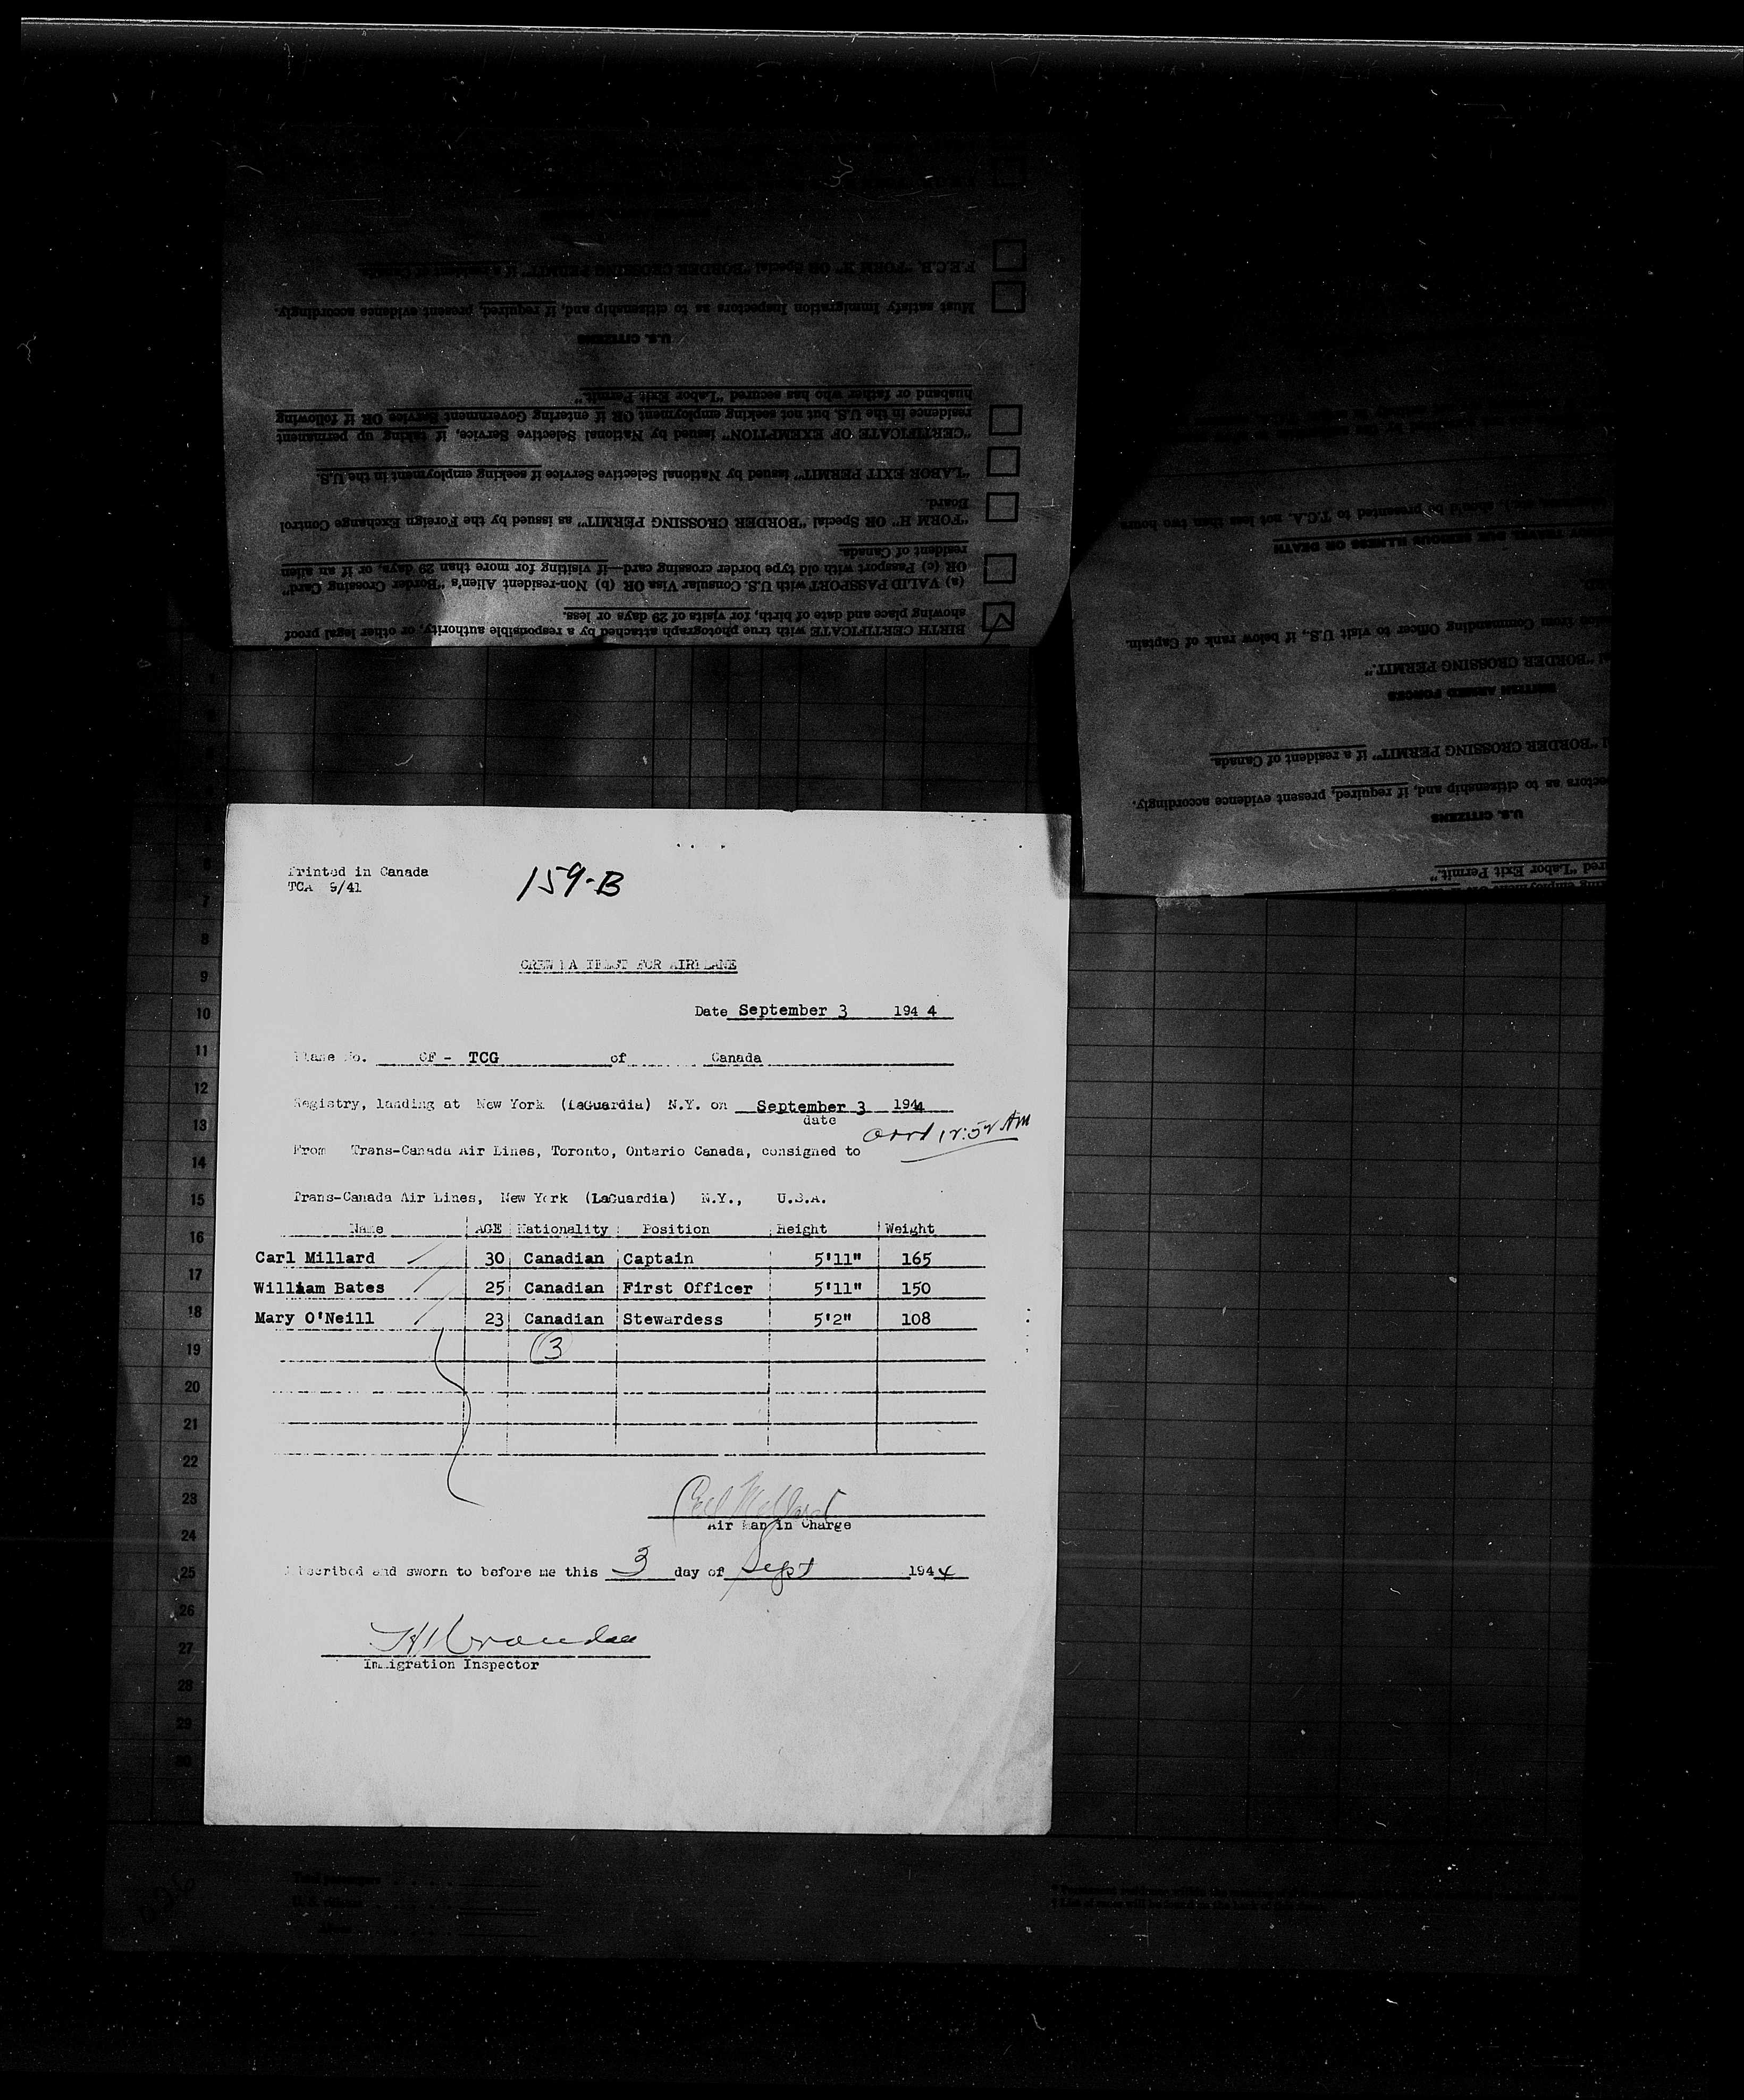 F.E.C.B. "FORM H" OR Special "BORDER CROSSING PERMIT" if a resident of Canada.
Must satisfy Immigration Inspectors as to citizenship and, if required, present evidence accordingly.
U.S. CITIZENS
husband or father who has secured "Labor Exit Permit."
residence in the U.S. but not seeking employment OR if entering Government Service OR if following
"CERTIFICATE OF EXEMPTION" issued by National Selective Service, if taking up permanent
"LABOR EXIT PERMIT" issued by National Selective Service if seeking employment in the U.S.
Board.
"FORM H" OR Special "BORDER CROSSING PERMIT" as issued by the Foreign Exchange Control
resident of Canada.
OR (c) Passport with old type border crossing card—if visiting for more than 29 days, or if an alien
(a) VALID PASSPORT with U.S. Consular Visa OR (b) Non-resident Alien's "Border Crossing Card"
showing place and date of birth, for visits of 29 days or less.
BIRTH CERTIFICATE with true photograph attached by a responsible authority, or other legal proof
should be presented to T.C.A. not less than two hours
SERIOUS ILLNESS OR DEATH
from Commanding Officer to visit U.S., if below rank of Captain.
"BORDER CROSSING PERMIT."
BRITISH ARMED FORCES
"BORDER CROSSING PERMIT" if a resident of Canada.
ectors as to citizenship and, if required, present evidence accordingly.
U.S. CITIZENS
red "Labor Exit Permit."
Printed in Canada
TCA 9/41
159-B
CREW MANIFEST FOR AIRPLANE
Date September 3 1944
Plane No. CF - TCG of Canada
Registry, landing at New York (LaGuardia) N.Y. on September 3 1944
date
12:52 AM
From Trans-Canada Air Lines, Toronto, Ontario Canada, consigned to
Trans-Canada Air Lines, New York (LaGuardia) N.Y., U.S.A.
Name AGE Nationality Position Height Weight
Carl Millard 30 Canadian Captain 5'11" 165
William Bates 25 Canadian First Officer 5'11" 150
Mary O'Neill 23 Canadian Stewardess 5'2" 108
3
Carl Millard
Air Man in Charge
Subscribed and sworn to before me this 3 day of Sept 1944
Immigration Inspector
6
7
8
9
10
11
12
13
14
15
16
17
18
19
20
21
22
23
24
25
26
27
28
29
30
Total passengers
U.S. citizens
Aliens